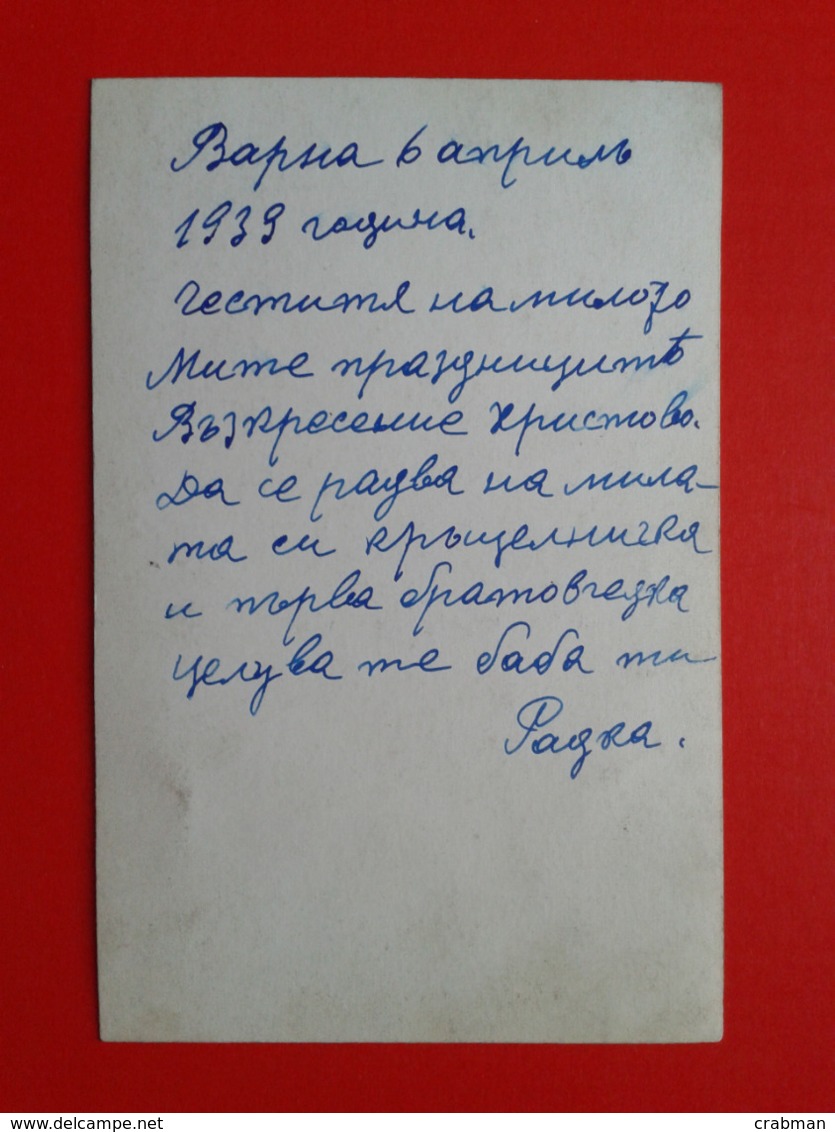 Варна 6 априль
1939 година.
Честитя на милото
Мите празницитѣ
Възкресение Христово.
Да се радва на мила-
та си кръщелничка
и първа братовчедка
целува те баба ти
Радка.
delcampe.net
crabman